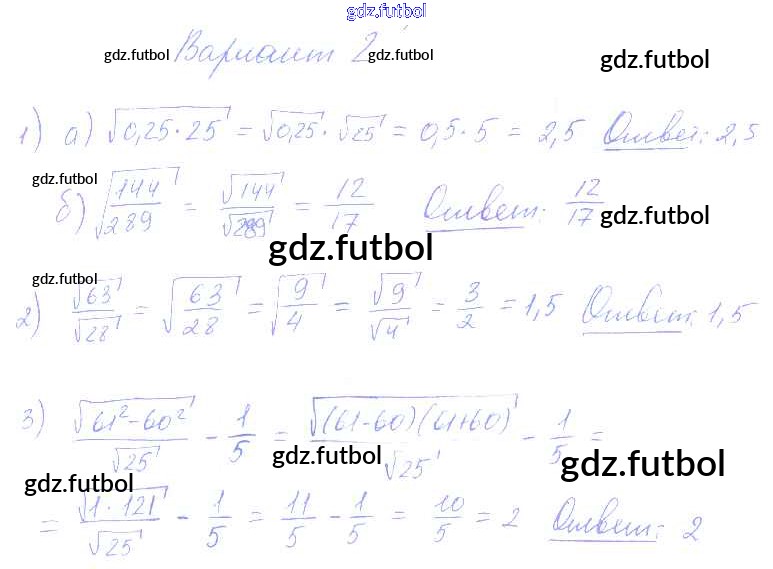 gdz.futbol
Вариант 2
gdz.futbol gdz.futbol gdz.futbol
1) а) √(0,25·25) = √0,25 · √25 = 0,5·5 = 2,5 Ответ: 2,5
gdz.futbol
б) √(144/289) = √144/√289 = 12/17 Ответ: 12/17
gdz.futbol
gdz.futbol
gdz.futbol
2) √63/√28 = √(63/28) = √(9/4) = √9/√4 = 3/2 = 1,5 Ответ: 1,5
3) √(61²-60²)/√25 - 1/5 = √((61-60)(61+60))/√25 - 1/5 =
gdz.futbol gdz.futbol gdz.futbol
= √(1·121)/√25 - 1/5 = 11/5 - 1/5 = 10/5 = 2 Ответ: 2